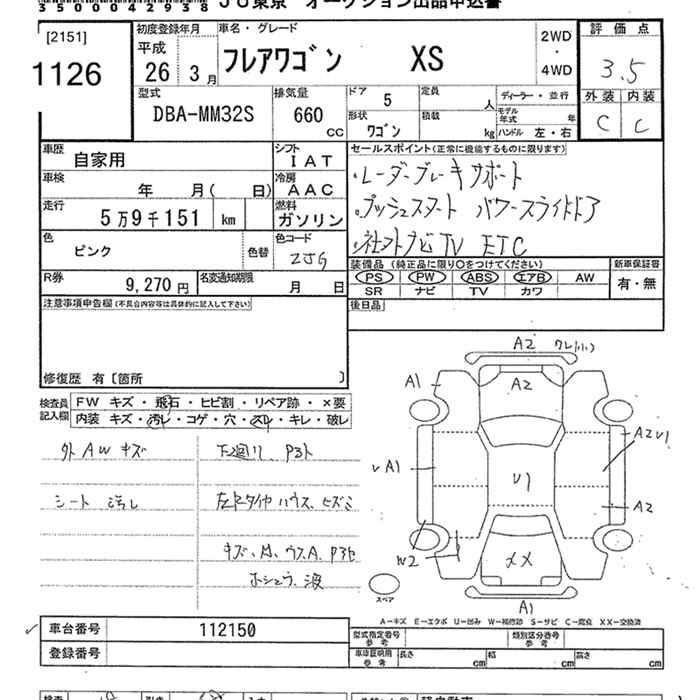 35000429358 JU東京 オークション出品申込書
[2151]
1126
初度登録年月
平成
26年 3月
車名・グレード
フレアワゴン XS
2WD
・
4WD
評価点
3.5
外装 内装
C C
型式
DBA-MM32S
排気量
660
CC
ドア 5
形状 ワゴン
定員 人
積載 kg
ディーラー・並行
モデル年式 年
ハンドル 左・右
車歴
自家用
シフト
IAT
車検
年 月( 日)
冷房
AAC
走行
5万9千151 km
燃料
ガソリン
色
ピンク
色替
色コード
ZJG
R券
9,270円
名変通知期限
月 日
セールスポイント(正常に機能するものに限ります)
・レーダーブレーキサポート
・プッシュスタート パワースライドドア
・社外ナビ TV ETC
装備品(純正品に限り〇をつけてください)
PS PW ABS エアB AW
SR ナビ TV カワ
新車保証書
有・無
後日品
注意事項申告欄(不具合内容等は具体的に記入して下さい)
修復歴 有〔箇所 〕
検査員
記入欄
FW キズ・飛石・ヒビ割・リペア跡・×要
内装 キズ・汚れ・コゲ・穴・スレ・キレ・破レ
外AWキズ
シート 汚レ
下廻り、サビ
キズ、凹、ウスA、
ホシュウ、波
A2 ワレ(小)
A2
A1
A2 U1
U1
A1
A2
W2
XX
A1
スペア
A-キズ E-エクボ U-凹み W-補修跡 S-サビ C-腐食 XX-交換済
車台番号 112150
登録番号
型式指定番号
参考
類別区分番号
参考
車庫証明用
参考
長さ cm
幅 cm
高さ cm